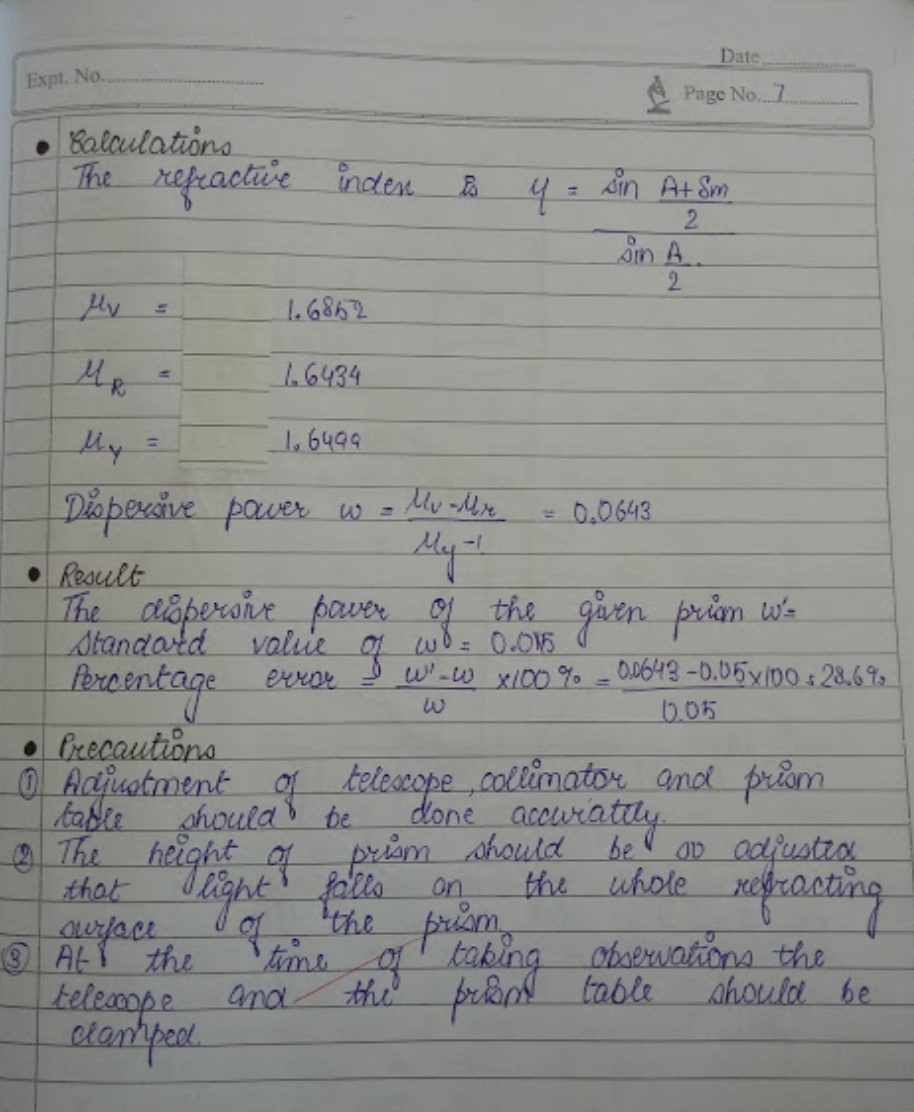 Date
Expt. No.
Page No. 7
Calculations
The refractive index is μ = sin (A+δm)/2 / sin A/2
μv = 1.6852
μR = 1.6434
μy = 1.6499
Dispersive power ω = μv-μr / μy-1 = 0.0643
Result
The dispersive power of the given prism ω'=
Standard value of ω =
Percentage error = ω'-ω / ω ×100% = 0.0643-0.05 / 0.05 ×100 = 28.6%
Precautions
① Adjustment of telescope, collimator and prism
table should be done accurately.
② The height of prism should be so adjusted
that light falls on the whole refracting
surface of the prism
③ At the time of taking observations the
telescope and the prism table should be
clamped.